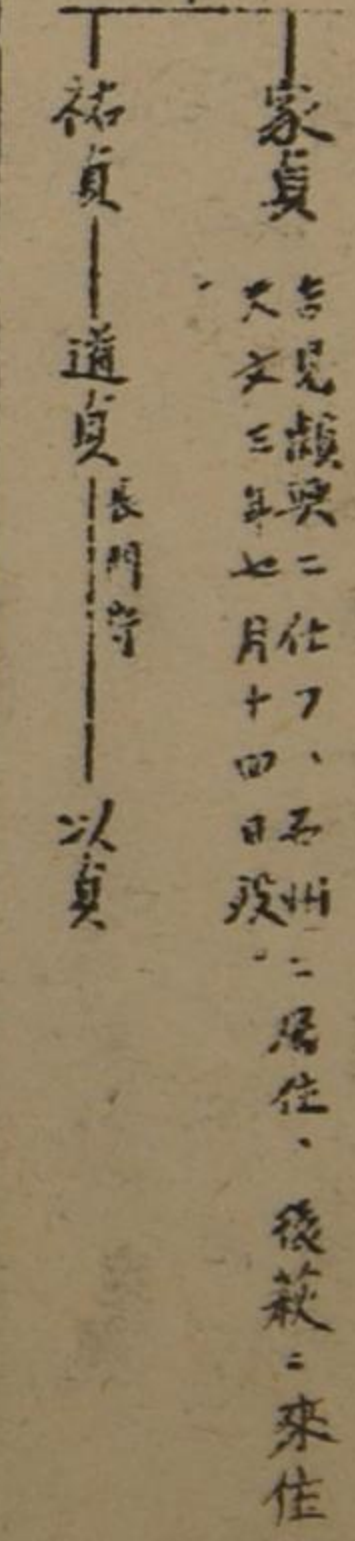 家貞
吉見頼興ニ仕フ、石州ニ居住、後萩ニ來住
天文三年七月十四日歿。
祐貞
道貞
長門守
以貞